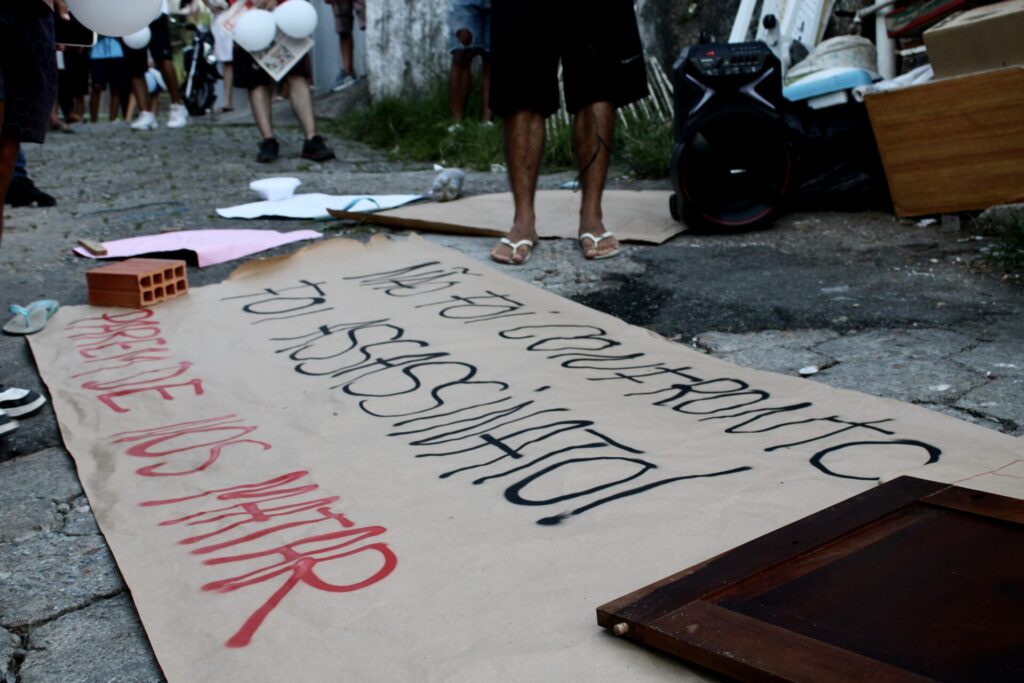 NÃO FOI CONFRONTO
FOI ASSASSINATO!
PAREM DE NOS MATAR